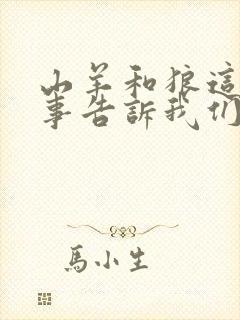 山羊和狼這
事告訴我们
馬小生